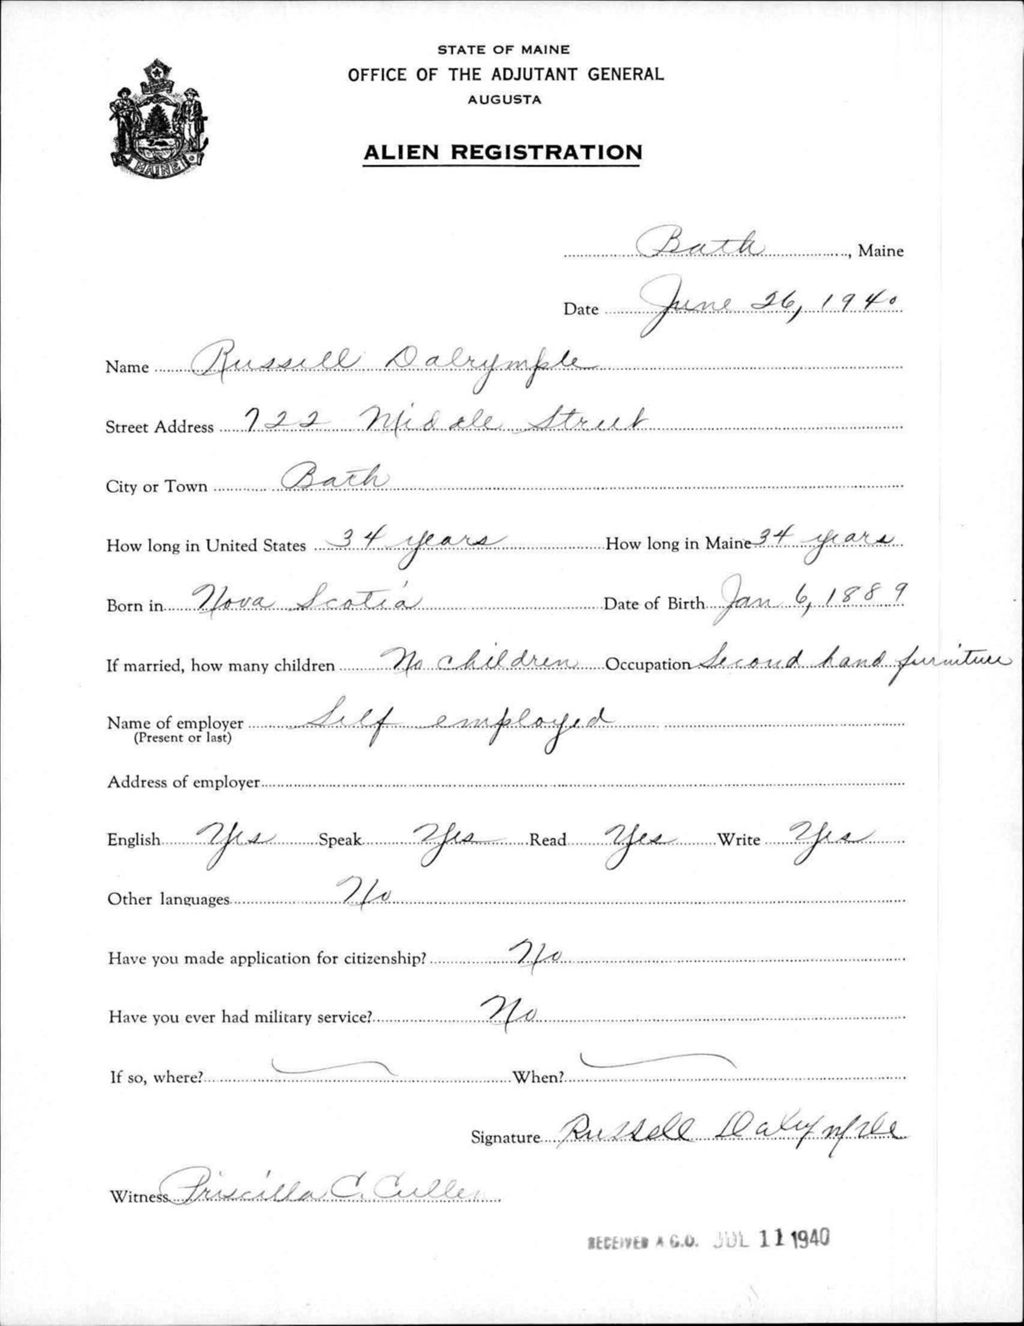 STATE OF MAINE
OFFICE OF THE ADJUTANT GENERAL
AUGUSTA
ALIEN REGISTRATION
MAINE
Bath, Maine
Date June 26, 1940
Name Russell Dalrymple
Street Address 722 Middle Street
City or Town Bath
How long in United States 34 years How long in Maine 34 years
Born in Nova Scotia Date of Birth Jan 6, 1889
If married, how many children No children Occupation Second hand furniture
Name of employer Self employed
(Present or last)
Address of employer
English Yes Speak Yes Read Yes Write Yes
Other languages No
Have you made application for citizenship? No
Have you ever had military service? No
If so, where? When?
Signature Russell Dalrymple
Witness Priscilla C. Cullen
RECEIVED A.G.O. JUL 11 1940